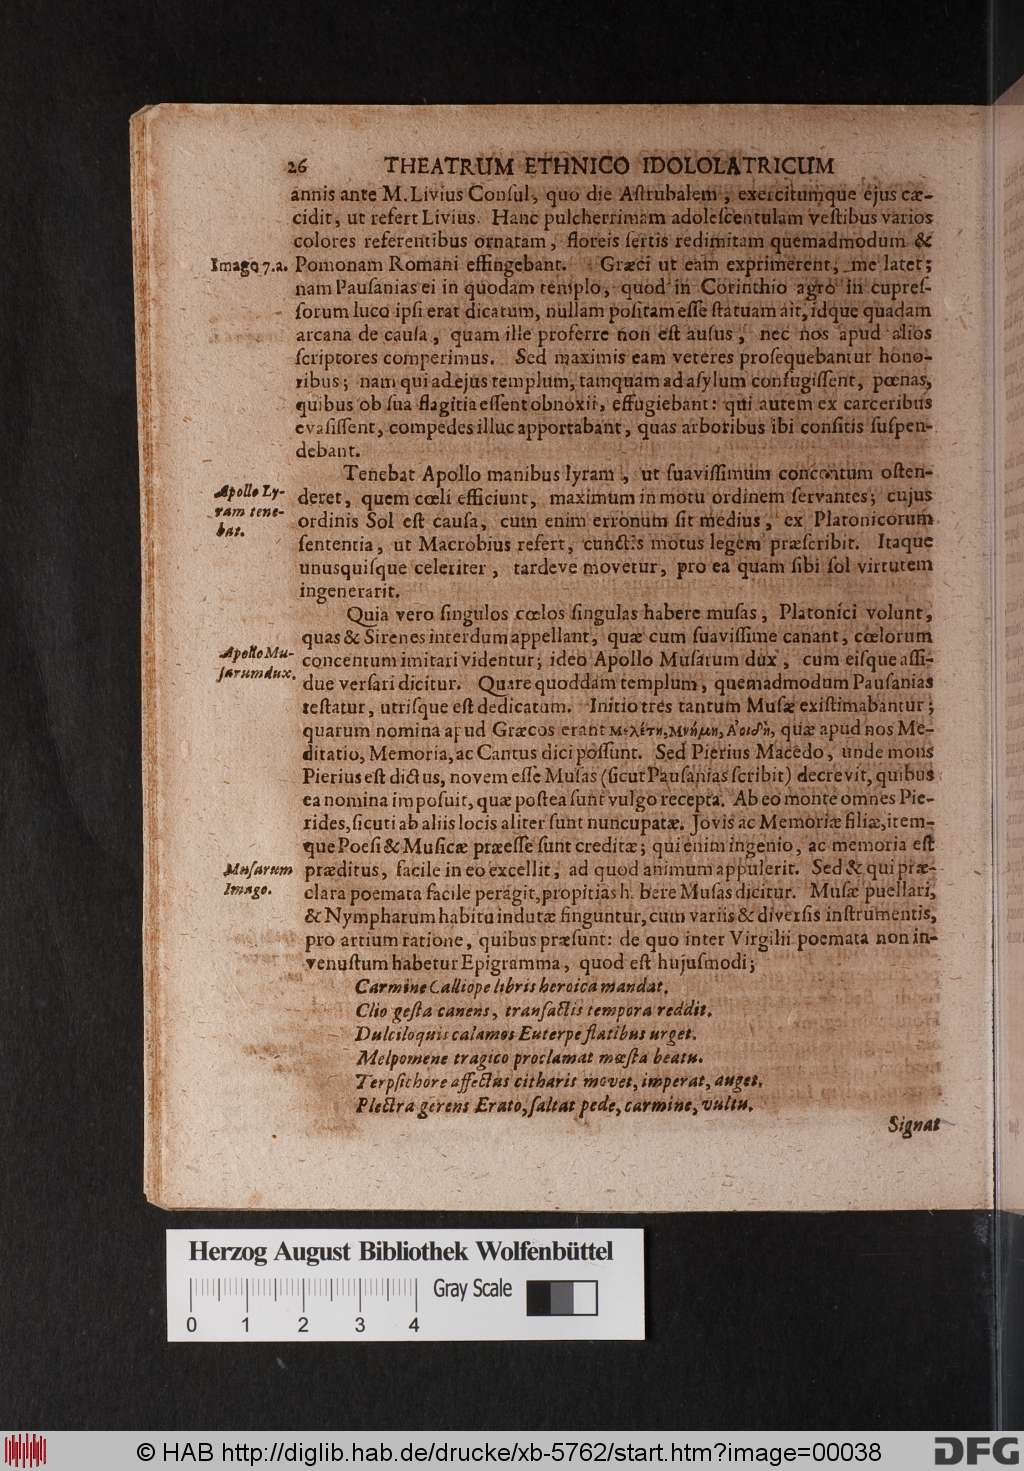 26 THEATRUM ETHNICO IDOLOLATRICUM
annis ante M. Livius Conſul, quo die Aſtrubalem, exercitumque ejus cæ-
cidit, ut refert Livius. Hanc pulcherrimam adoleſcentulam veſtibus varios
colores referentibus ornatam, floreis ſertis redimitam quemadmodum &
Imago 7.a. Pomonam Romani effingebant. Græci ut eam exprimerent, me latet;
nam Pauſanias ei in quodam templo, quod in Corinthio agro in cupreſ-
ſorum luco ipſi erat dicatum, nullam poſitam eſſe ſtatuam ait, idque quadam
arcana de cauſa, quam ille proferre non eſt auſus, nec nos apud alios
ſcriptores comperimus. Sed maximis eam veteres proſequebantur hono-
ribus; nam qui ad ejus templum, tamquam ad aſylum confugiſſent, pœnas,
quibus ob ſua flagitia eſſent obnoxii, effugiebant: qui autem ex carceribus
evaſiſſent, compedes illuc apportabant, quas arboribus ibi conſitis ſuſpen-
debant.
Tenebat Apollo manibus lyram, ut ſuaviſſimum concentum oſten-
Apollo Ly-
ram tene-
bat.
deret, quem cœli efficiunt, maximum in motu ordinem ſervantes; cujus
ordinis Sol eſt cauſa, cum enim erronum ſit medius, ex Platonicorum
ſententia, ut Macrobius refert, cunctis motus legem præſcribit. Itaque
unusquiſque celeriter, tardeve movetur, pro ea quam ſibi ſol virtutem
ingenerarit.
Quia vero ſingulos cœlos ſingulas habere muſas, Platonici volunt,
quas & Sirenes interdum appellant, quæ cum ſuaviſſime canant, cœlorum
Apollo Mu-
ſarum dux.
concentum imitari videntur; ideo Apollo Muſarum dux, cum eiſque aſſi-
due verſari dicitur. Quare quoddam templum, quemadmodum Pauſanias
teſtatur, utriſque eſt dedicatum. Initio tres tantum Muſæ exiſtimabantur;
quarum nomina apud Græcos erant Μελέτη, Μνήμη, Ἀοιδὴ, quæ apud nos Me-
ditatio, Memoria, ac Cantus dici poſſunt. Sed Pierius Macedo, unde mons
Pierius eſt dictus, novem eſſe Muſas (ſicut Pauſanias ſcribit) decrevit, quibus
ea nomina impoſuit, quæ poſtea ſunt vulgo recepta. Ab eo monte omnes Pie-
rides, ſicuti ab aliis locis aliter ſunt nuncupatæ. Jovis ac Memoriæ filiæ, item-
que Poeſi & Muſicæ præeſſe ſunt creditæ; qui enim ingenio, ac memoria eſt
Muſarum
Imago.
præditus, facile in eo excellit, ad quod animum appulerit. Sed & qui præ-
clara poemata facile peragit, propitias h bere Muſas dicitur. Muſæ puellari,
& Nympharum habitu indutæ finguntur, cum variis & diverſis inſtrumentis,
pro artium ratione, quibus præſunt: de quo inter Virgilii poemata non in-
venuſtum habetur Epigramma, quod eſt hujuſmodi;
Carmine Calliope libris heroica mandat.
Clio geſta canens, tranſactis tempora reddit.
Dulciloquis calamos Euterpe flatibus urget.
Melpomene tragico proclamat mœſta beatu.
Terpſichore affectus citharis movet, imperat, auget.
Plectra gerens Erato, ſaltat pede, carmine, vultu.
Signat
Herzog August Bibliothek Wolfenbüttel
Gray Scale
0 1 2 3 4
© HAB http://diglib.hab.de/drucke/xb-5762/start.htm?image=00038
DFG